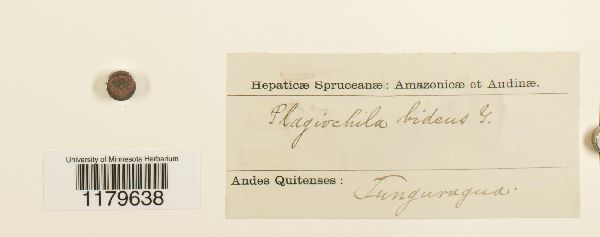 Hepaticæ Spruceanæ: Amazonicæ et Andinæ.
Plagiochila bidens G.
University of Minnesota Herbarium
1179638
Andes Quitenses:
Tunguragua.